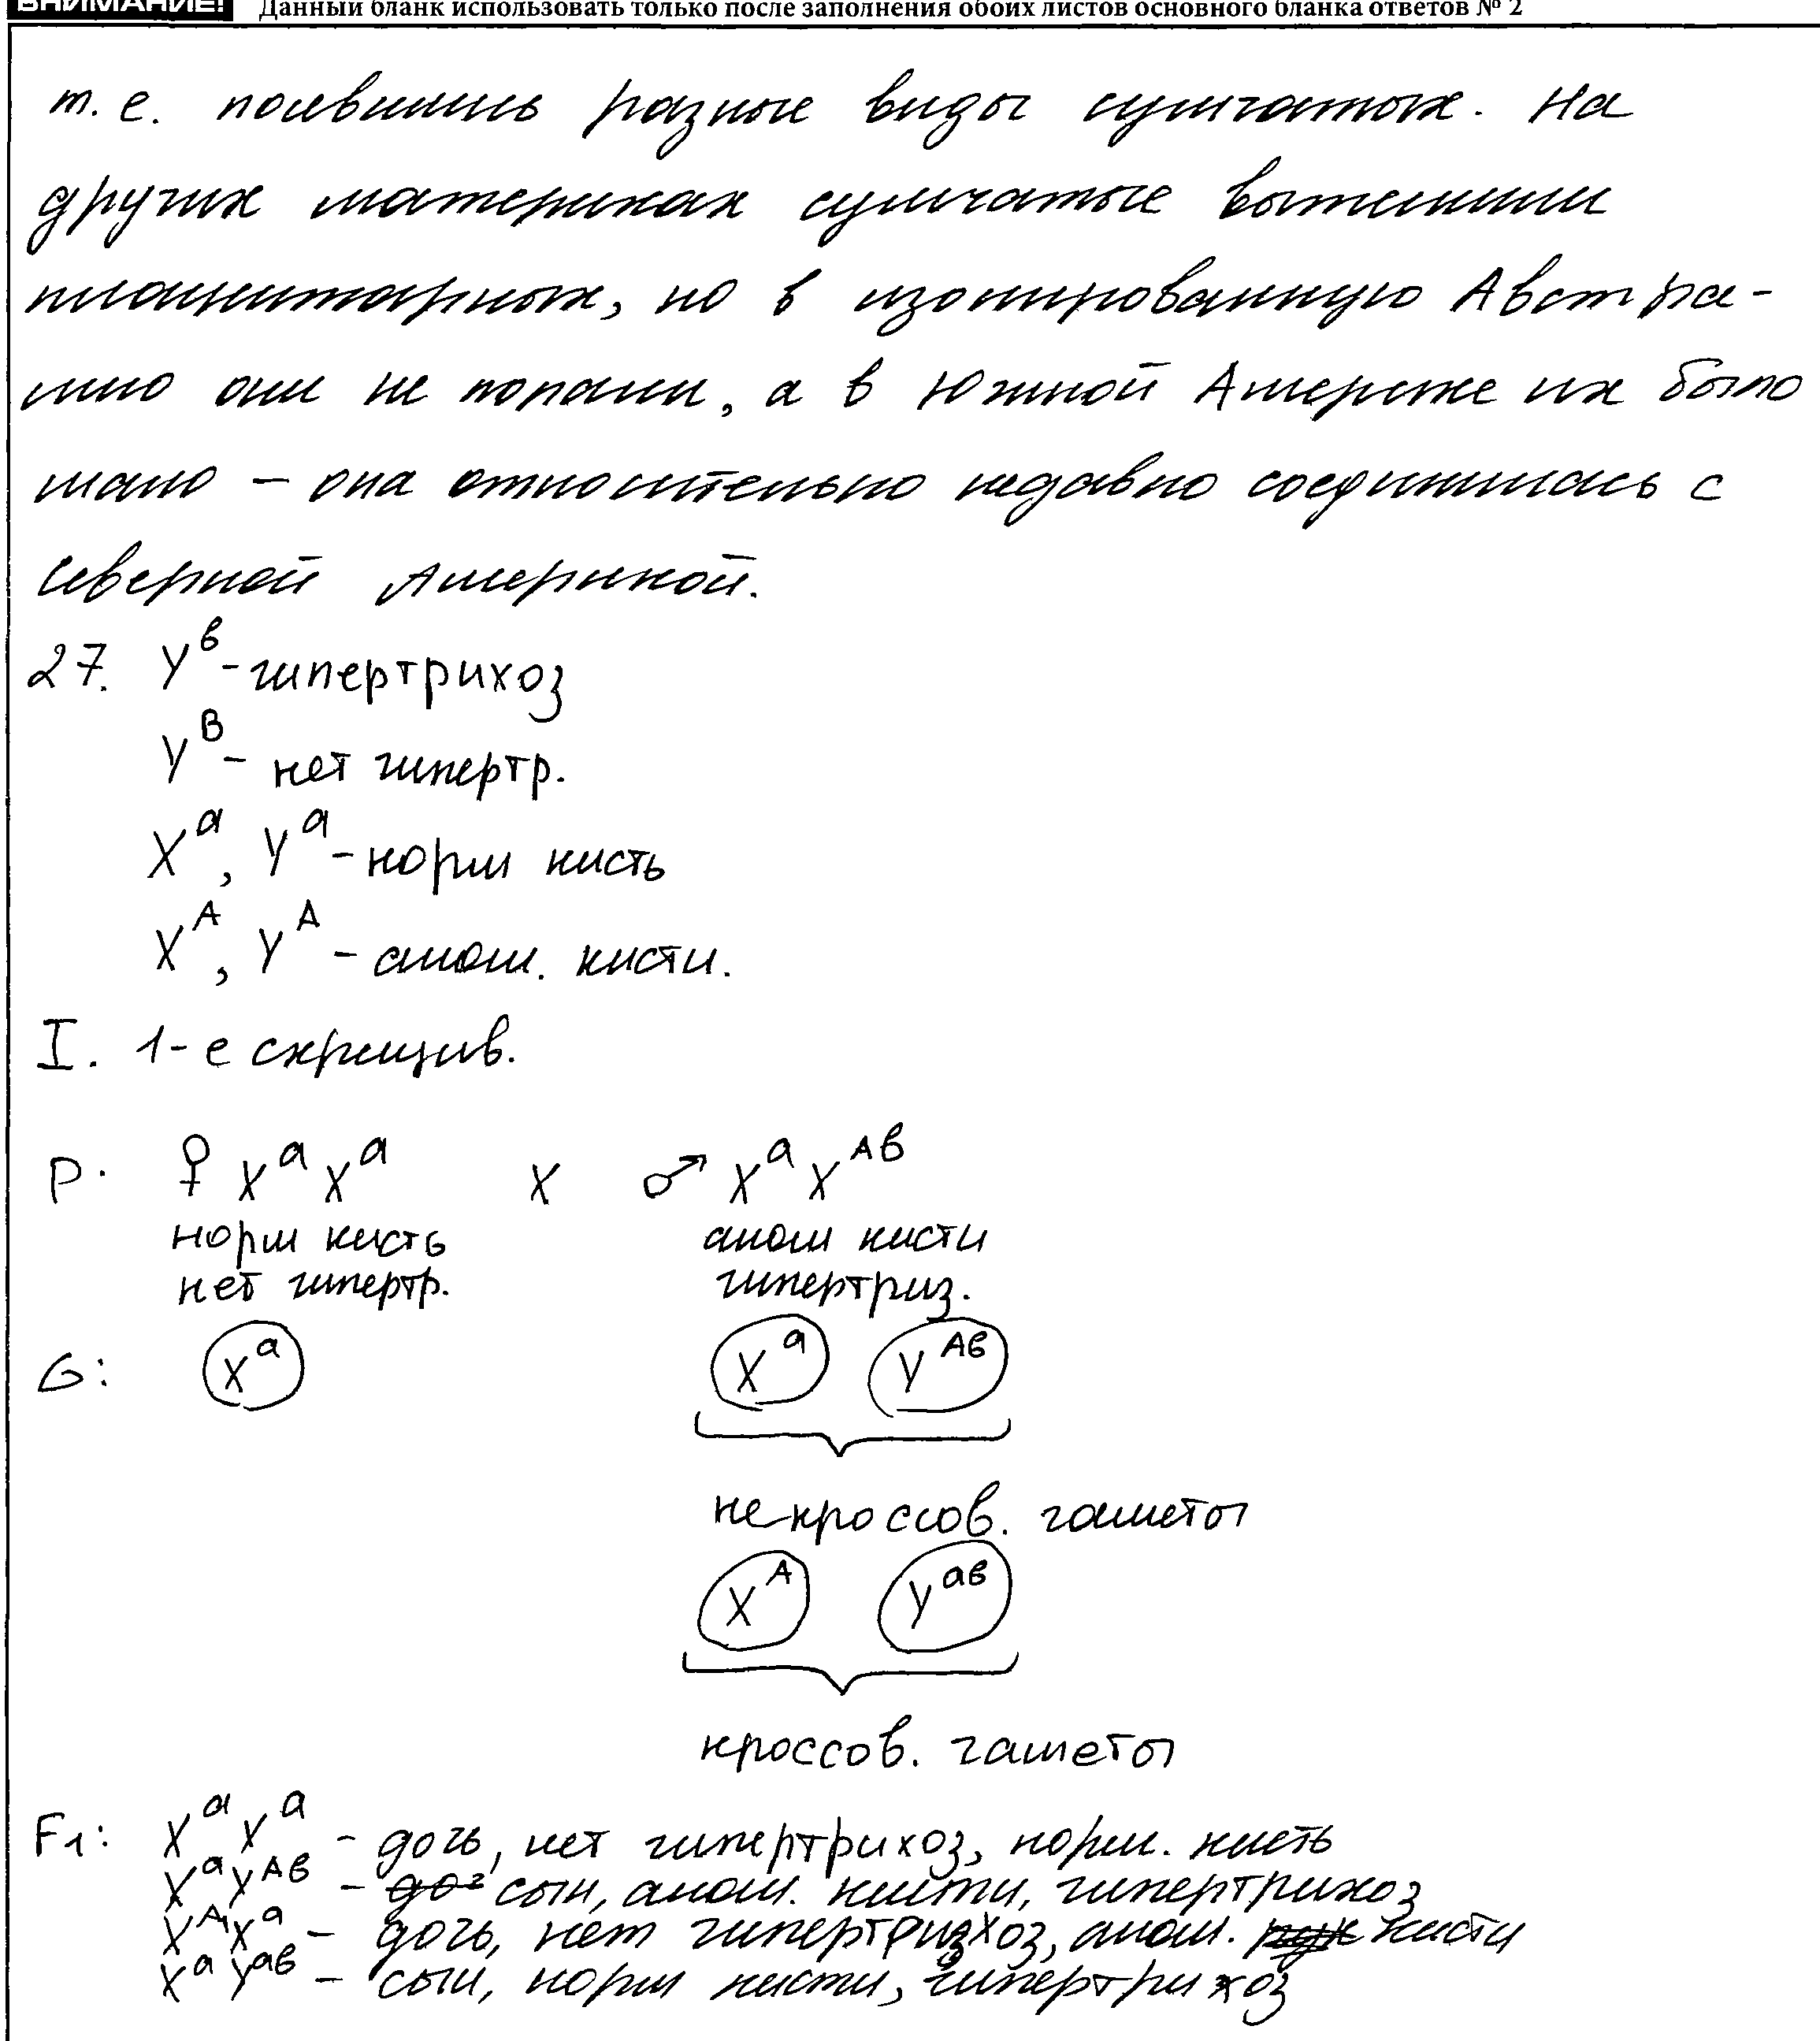 ВНИМАНИЕ! Данный бланк использовать только после заполнения обоих листов основного бланка ответов № 2
т.е. появились разные виды сумчатых. На
других материках сумчатые вытеснили
плацентарных, но в изолированную Австра-
лию они не попали, а в Южной Америке их было
мало – она относительно недавно соединилась с
Северной Америкой.
27. Yᵇ - гипертрихоз
Yᴮ - нет гипертр.
Xᵃ, Yᵃ - норм кисть
Xᴬ, Yᴬ - аном. кисти.
I. 1-е скрещив.
P. ♀ XᵃXᵃ x ♂ XᵃXᴬᵇ
норм кисть аном кисти
нет гипертр. гипертриз.
G: Xᵃ Xᵃ Yᴬᵇ
некроссов. гаметы
Xᴬ Yᵃᵇ
кроссов. гаметы
F1: XᵃXᵃ - дочь, нет гипертрихоз, норм. кисть
XᵃYᴬᵇ - сын, аном. кисти, гипертрихоз
XᴬXᵃ - дочь, нет гипертризхоз, аном. кисти
XᵃYᵃᵇ - сын, норм кисти, гипертрихоз